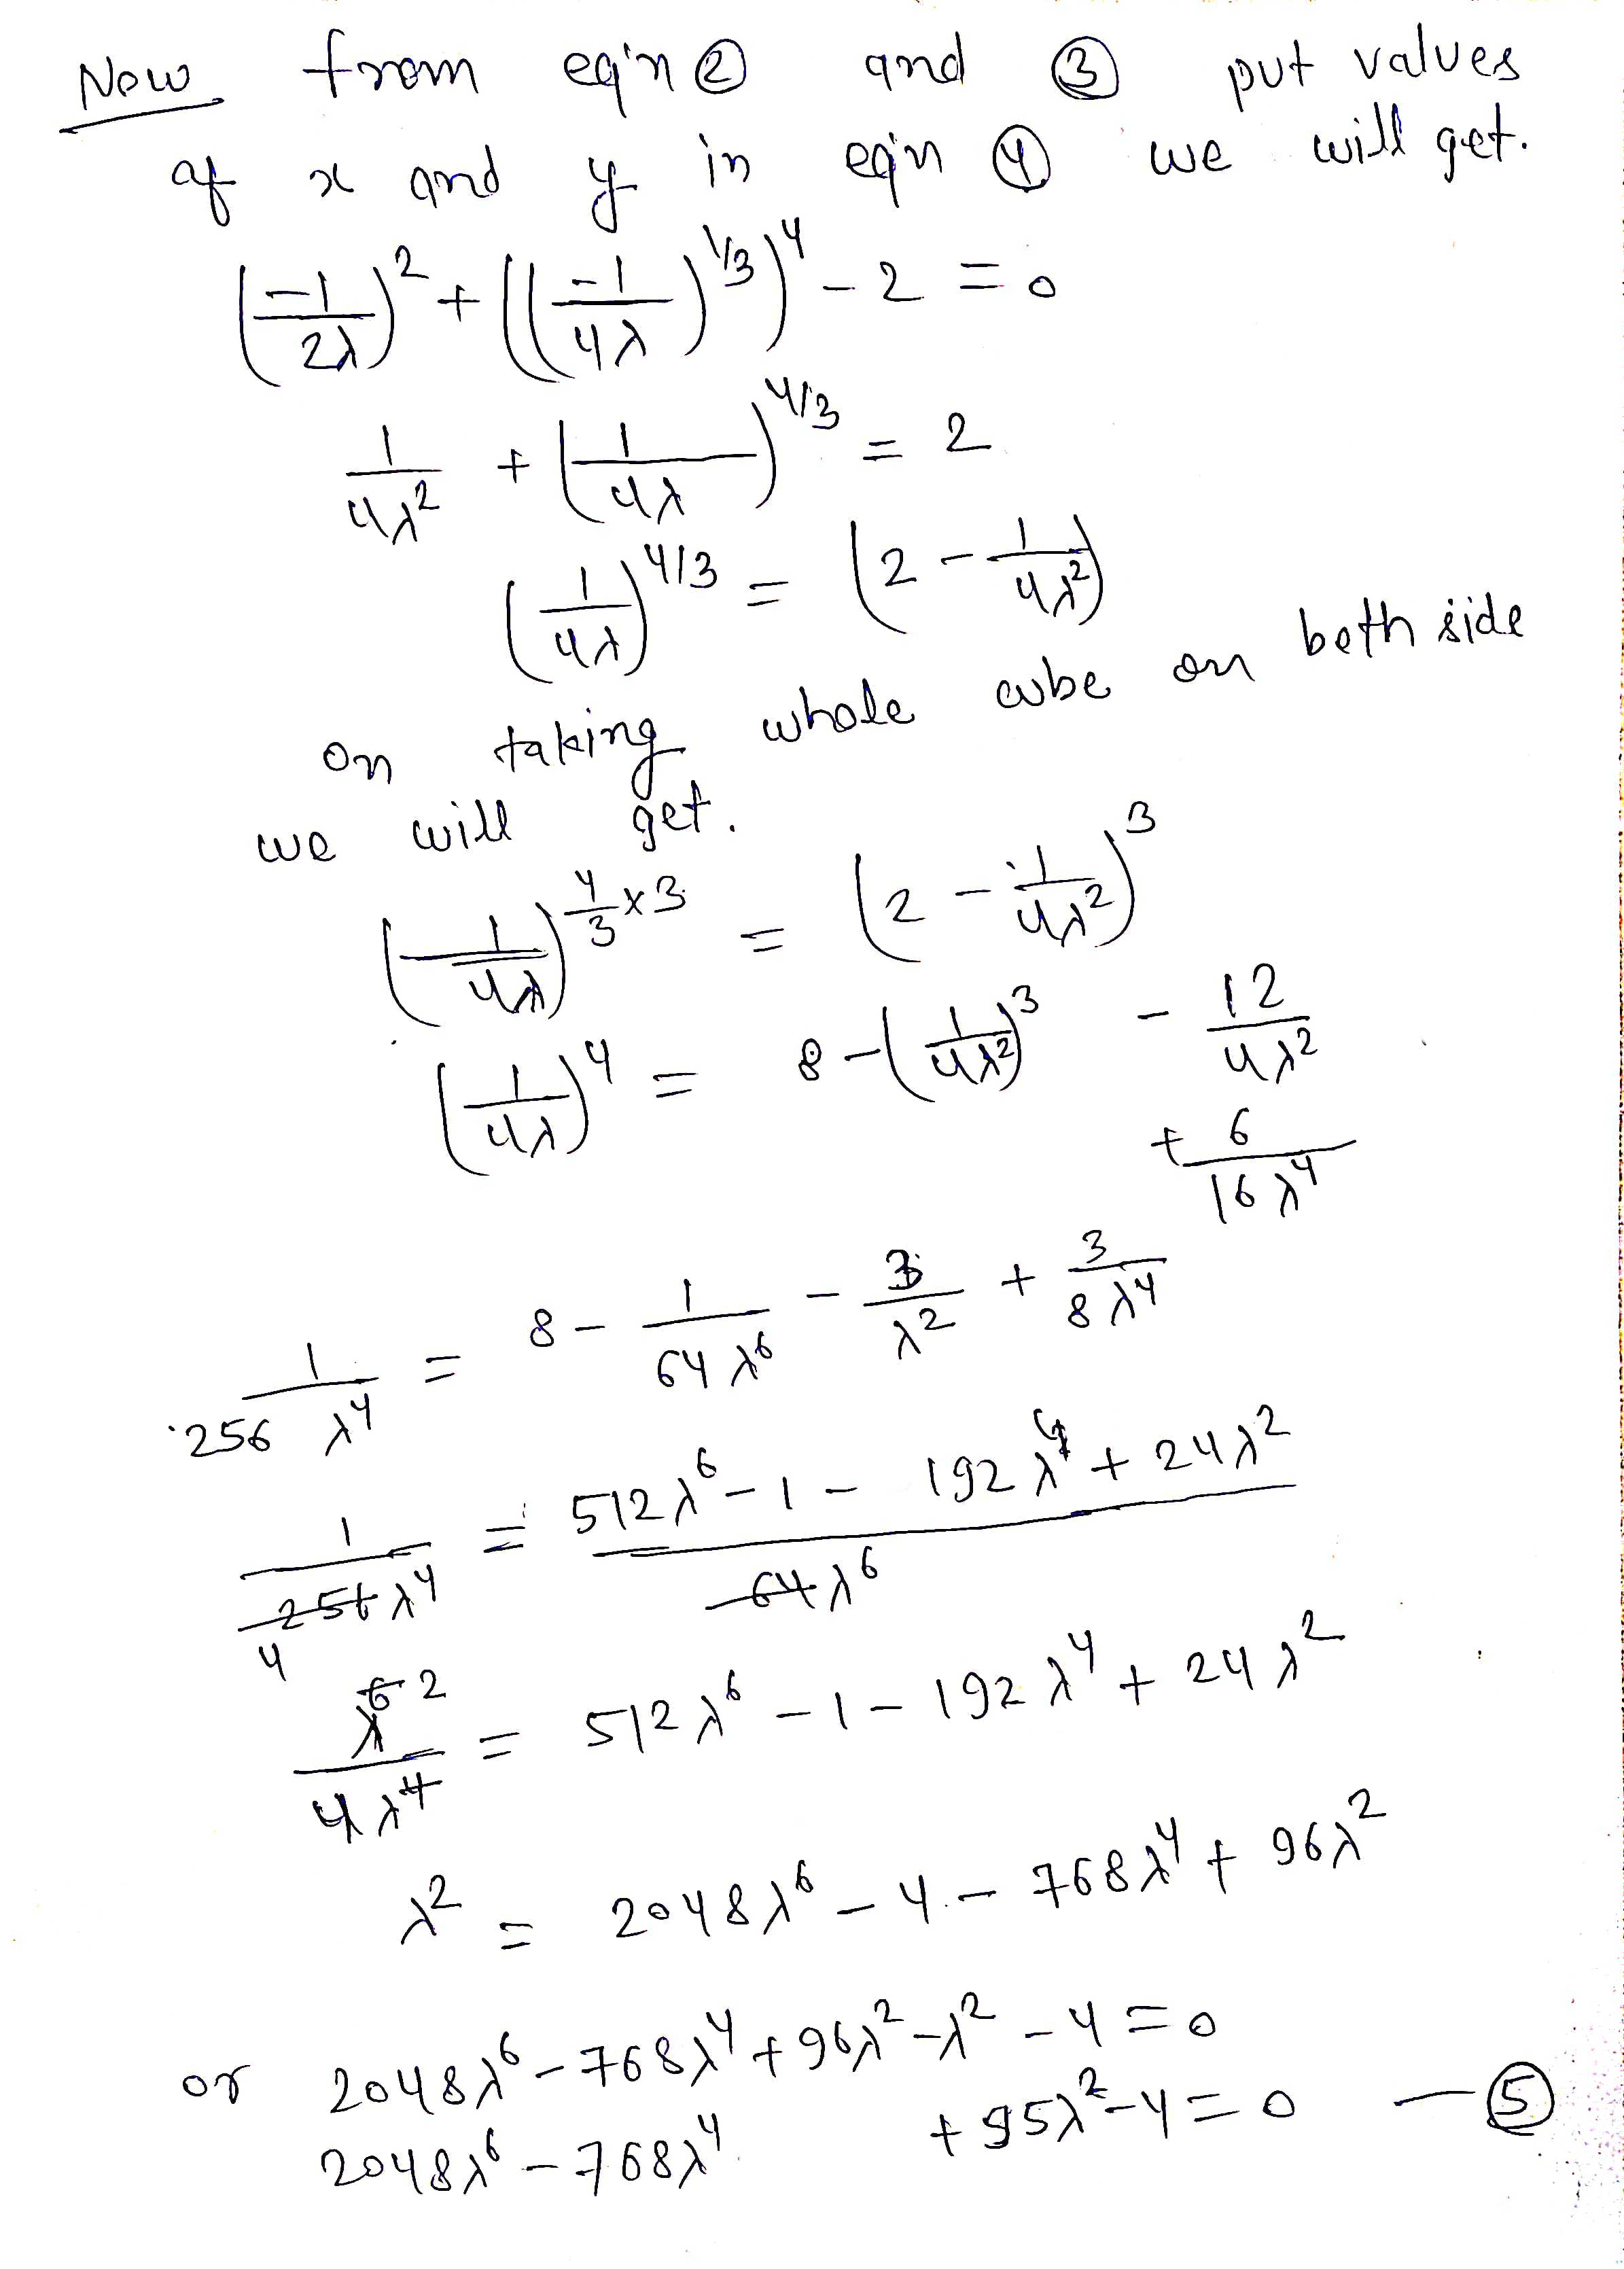 Now from eq'n ② and ③ put values
of x and y in eq'n ④ we will get.
(-1/2λ)² + ((-1/4λ)^1/3)^4 - 2 = 0
1/4λ² + (1/4λ)^4/3 = 2
(1/4λ)^4/3 = (2 - 1/4λ²)
on taking whole cube on both side
we will get.
(1/4λ)^(4/3 × 3) = (2 - 1/4λ²)³
(1/4λ)⁴ = 8 - (1/4λ²)³ - 12/4λ²
+ 6/16λ⁴
1/256λ⁴ = 8 - 1/64λ⁶ - 3/λ² + 3/8λ⁴
1/256λ⁴ = 512λ⁶ - 1 - 192λ⁴ + 24λ² / 64λ⁶
4
λ⁶ ² / 4λ⁴ = 512λ⁶ - 1 - 192λ⁴ + 24λ²
λ² = 2048λ⁶ - 4 - 768λ⁴ + 96λ²
or 2048λ⁶ - 768λ⁴ + 96λ² - λ² - 4 = 0
2048λ⁶ - 768λ⁴ + 95λ² - 4 = 0 — ⑤